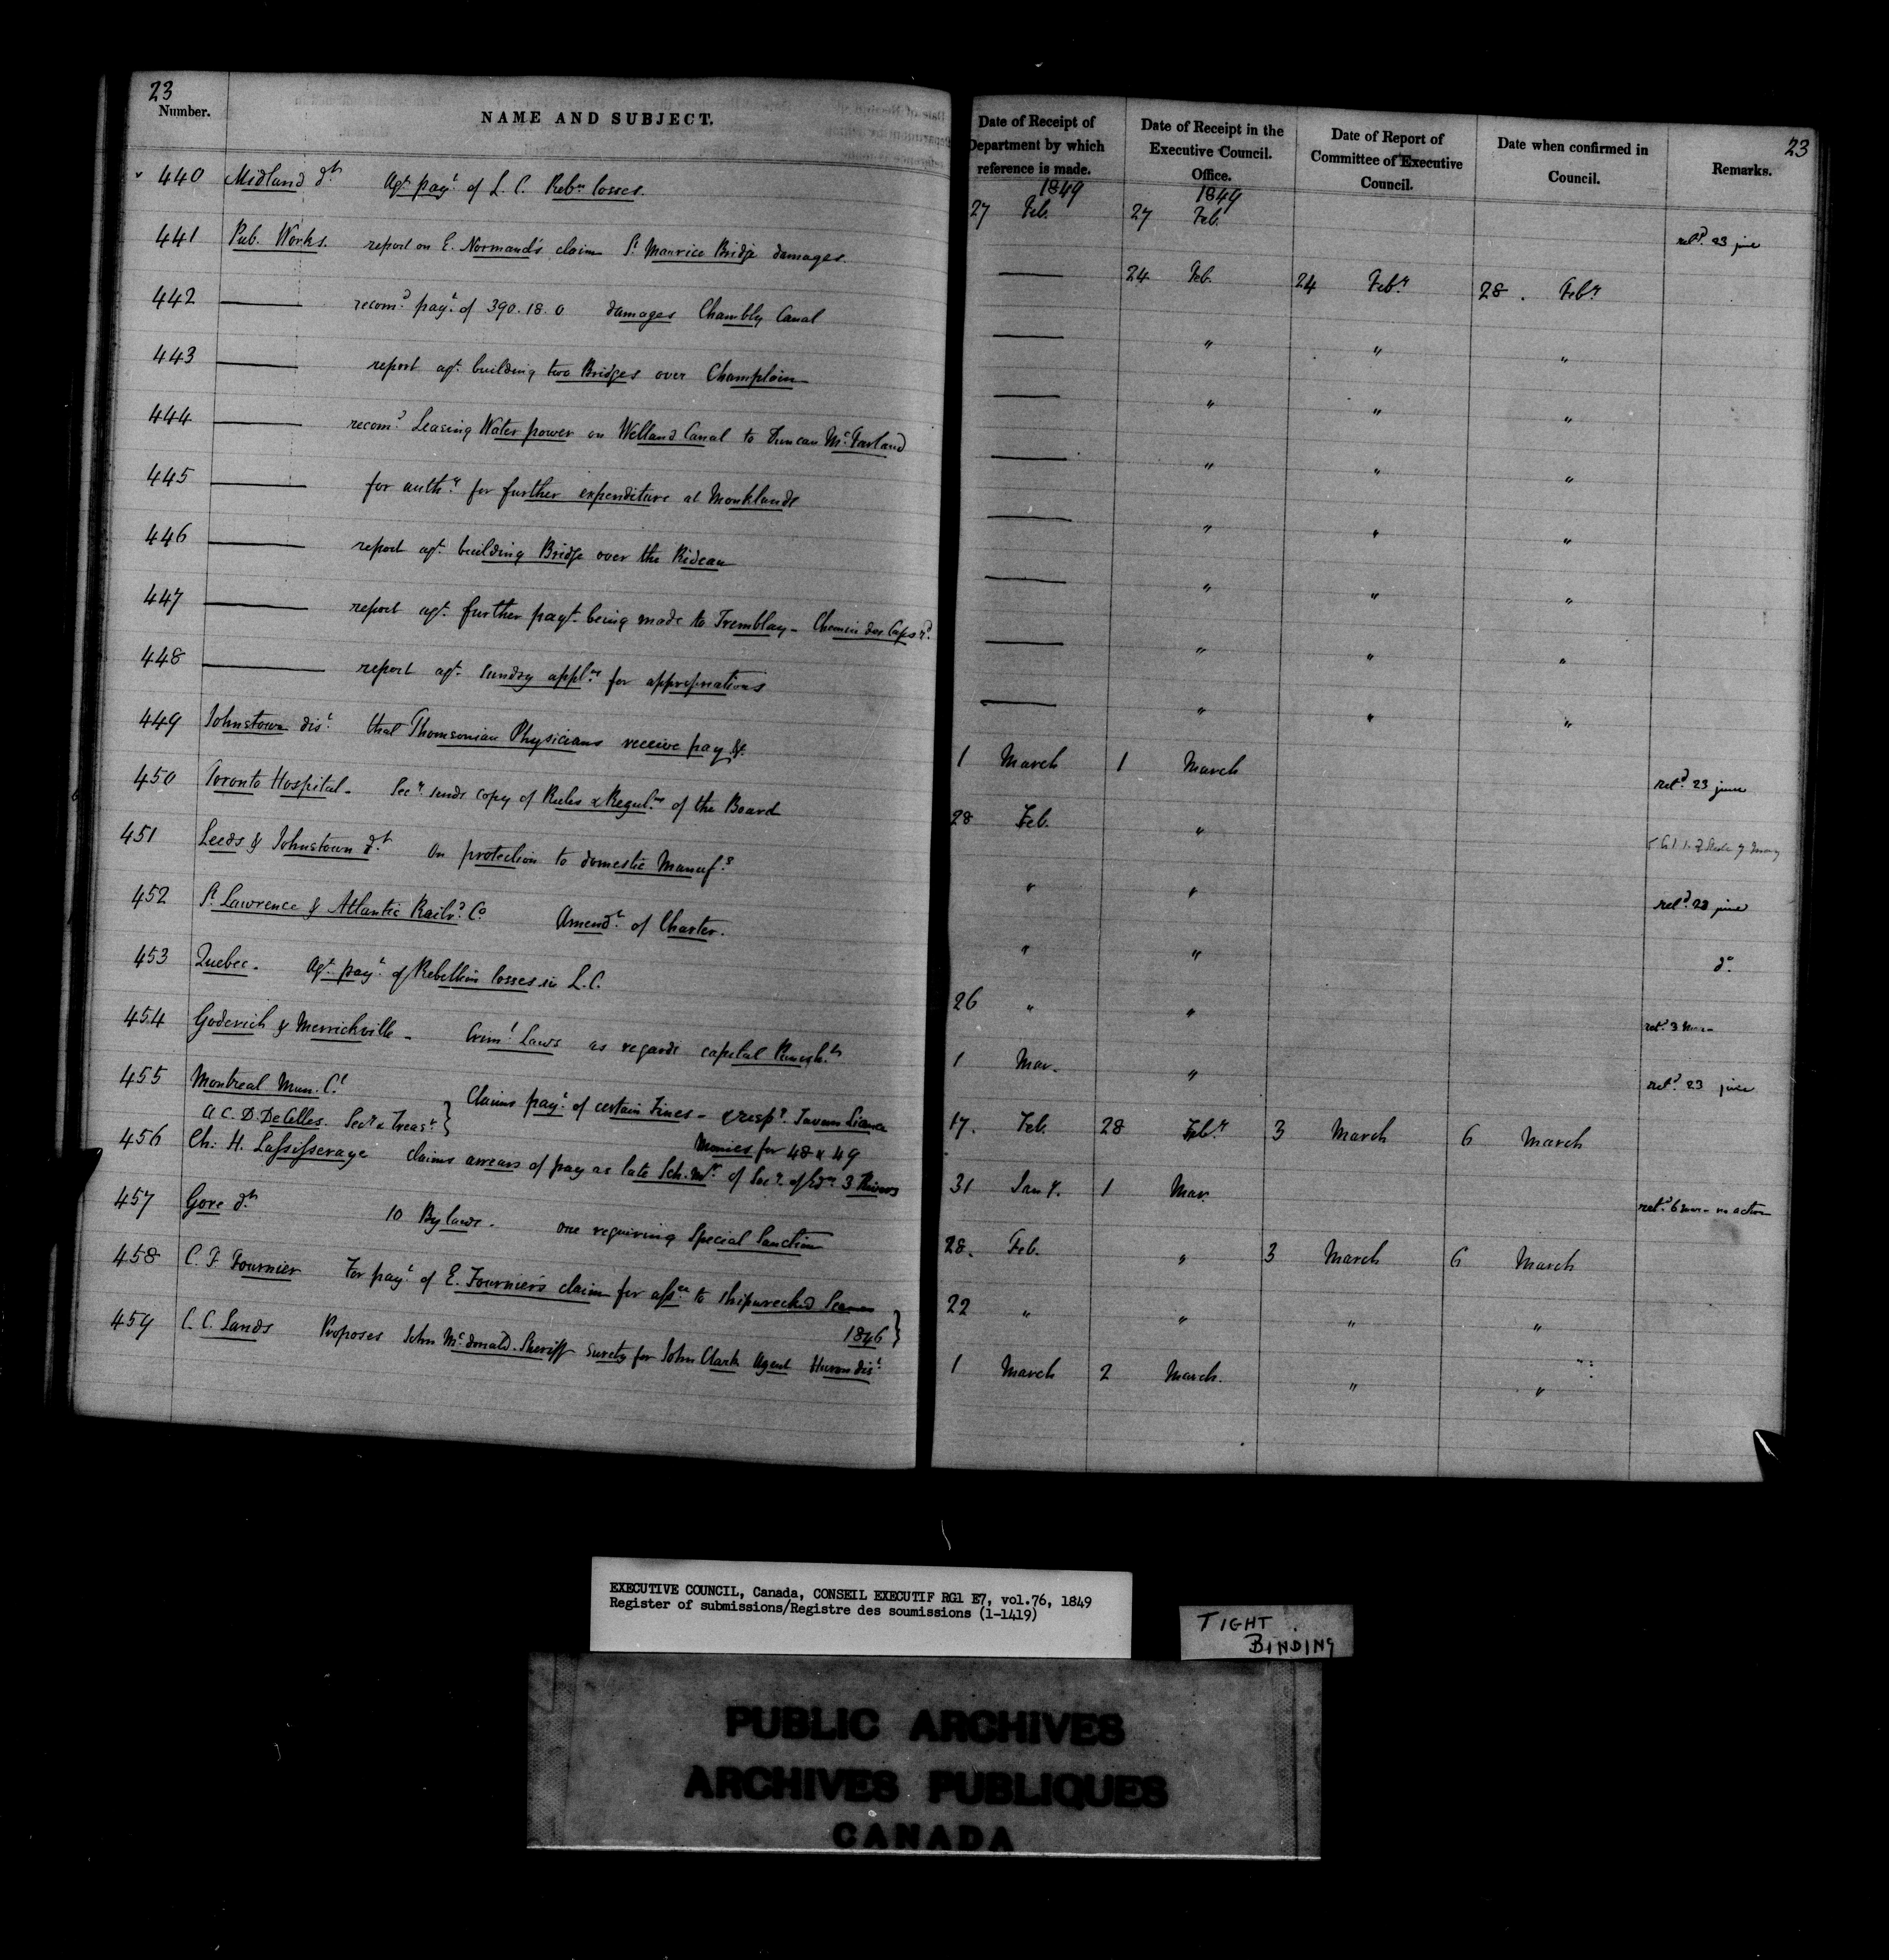 23
Number. NAME AND SUBJECT.
440 Midland dt. Agt. payt. of L. C. Rebn. losses.
441 Pub. Works. report on E. Normand's claim St. Maurice Bridge damages.
442 ——— recomd. payt. of 390.18.0 damages Chambly Canal
443 ——— report agt. building two Bridges over Champlain
444 ——— recomd. Leasing Water power on Welland Canal to Duncan McFarland
445 ——— for authy. for further expenditure at Monklands
446 ——— report agt. building Bridge over the Rideau
447 ——— report agt. further payt. being made to Tremblay - Chemin des Caps rd.
448 ——— report agt. sundry applns. for appropriations
449 Johnstown dist. that Thomsonian Physicians receive pay &c.
450 Toronto Hospital - Secy. sends copy of Rules & Reguls. of the Board
451 Leeds & Johnstown dt. On protection to domestic Manufs.
452 St. Lawrence & Atlantic Railrd. Co. Amendt. of Charter.
453 Quebec - Agt. payt. of Rebellion losses in L. C.
454 Goderich & Merrickville - Criml. Laws as regards capital Punisht.
455 Montreal Mun. Cl.
A C. D. DeCelles. Secy & Treasr. } Claims payt. of certain Fines - & respg. Tavern Licence
Monies for 48 & 49
456 Ch: H. Lassisseraye claims arrears of pay as late Sch. Mr. of Socy. of Edn. 3 Rivers
457 Gore dt. 10 By laws - one requiring Special Sanction
458 C. F. Fournier For payt. of E. Fournier's claim for assce. to shipwrecked Seamen
1846 }
459 C. C. Lands Proposes John McDonald. Sheriff surety for John Clark Agent Huron dist.
23
Date of Receipt of Department by which reference is made.
Date of Receipt in the Executive Council. Office.
Date of Report of Committee of Executive Council.
Date when confirmed in Council.
Remarks.
1849 1849
27 Feb. 27 Feb. retd. 23 june
——— 24 Feb. 24 Feby. 28. Feby.
——— " " "
——— " " "
——— " " "
——— " " "
——— " " "
——— " " "
——— " " "
1 March 1 March retd. 23 june
28 Feb. "
" " retd. 23 june
" " do.
26 " " retd. 3 Mar -
1 Mar. " retd. 23 june
17. Feb. 28 Feby. 3 March 6 March
31 Jany. 1 Mar. retd. 6 mar - no action
28. Feb. " 3 March 6 March
22 " " " "
1 March 2 March. " "
EXECUTIVE COUNCIL, Canada, CONSEIL EXECUTIF RG1 E7, vol.76, 1849
Register of submissions/Registre des soumissions (1-1419)
TIGHT
BINDING
PUBLIC ARCHIVES
ARCHIVES PUBLIQUES
CANADA